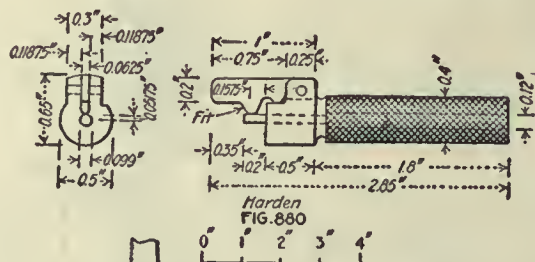 0.3"
0.11875"
0.11875"
0.0625"
0.65"
0.0575"
0.099"
0.5"
1"
0.75"
0.25"
0.2"
0.1575"
Fit
0.4"
0.12"
0.35"
0.2"
0.5"
1.8"
2.85"
Harden
FIG. 880
0" 1" 2" 3" 4"